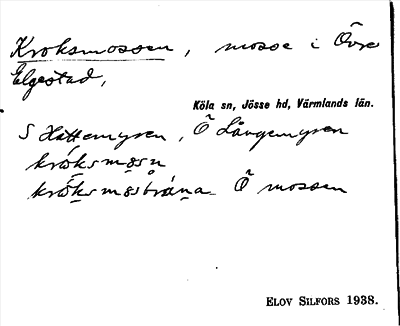 Kroksmossen, mosse i Övre
Elgestad,
Köla sn, Jösse hd, Värmlands län.
S Hattemyren, Ö Långemyren
króksmosn
króksmosbråna Ö mossen
ELOV SILFORS 1938.